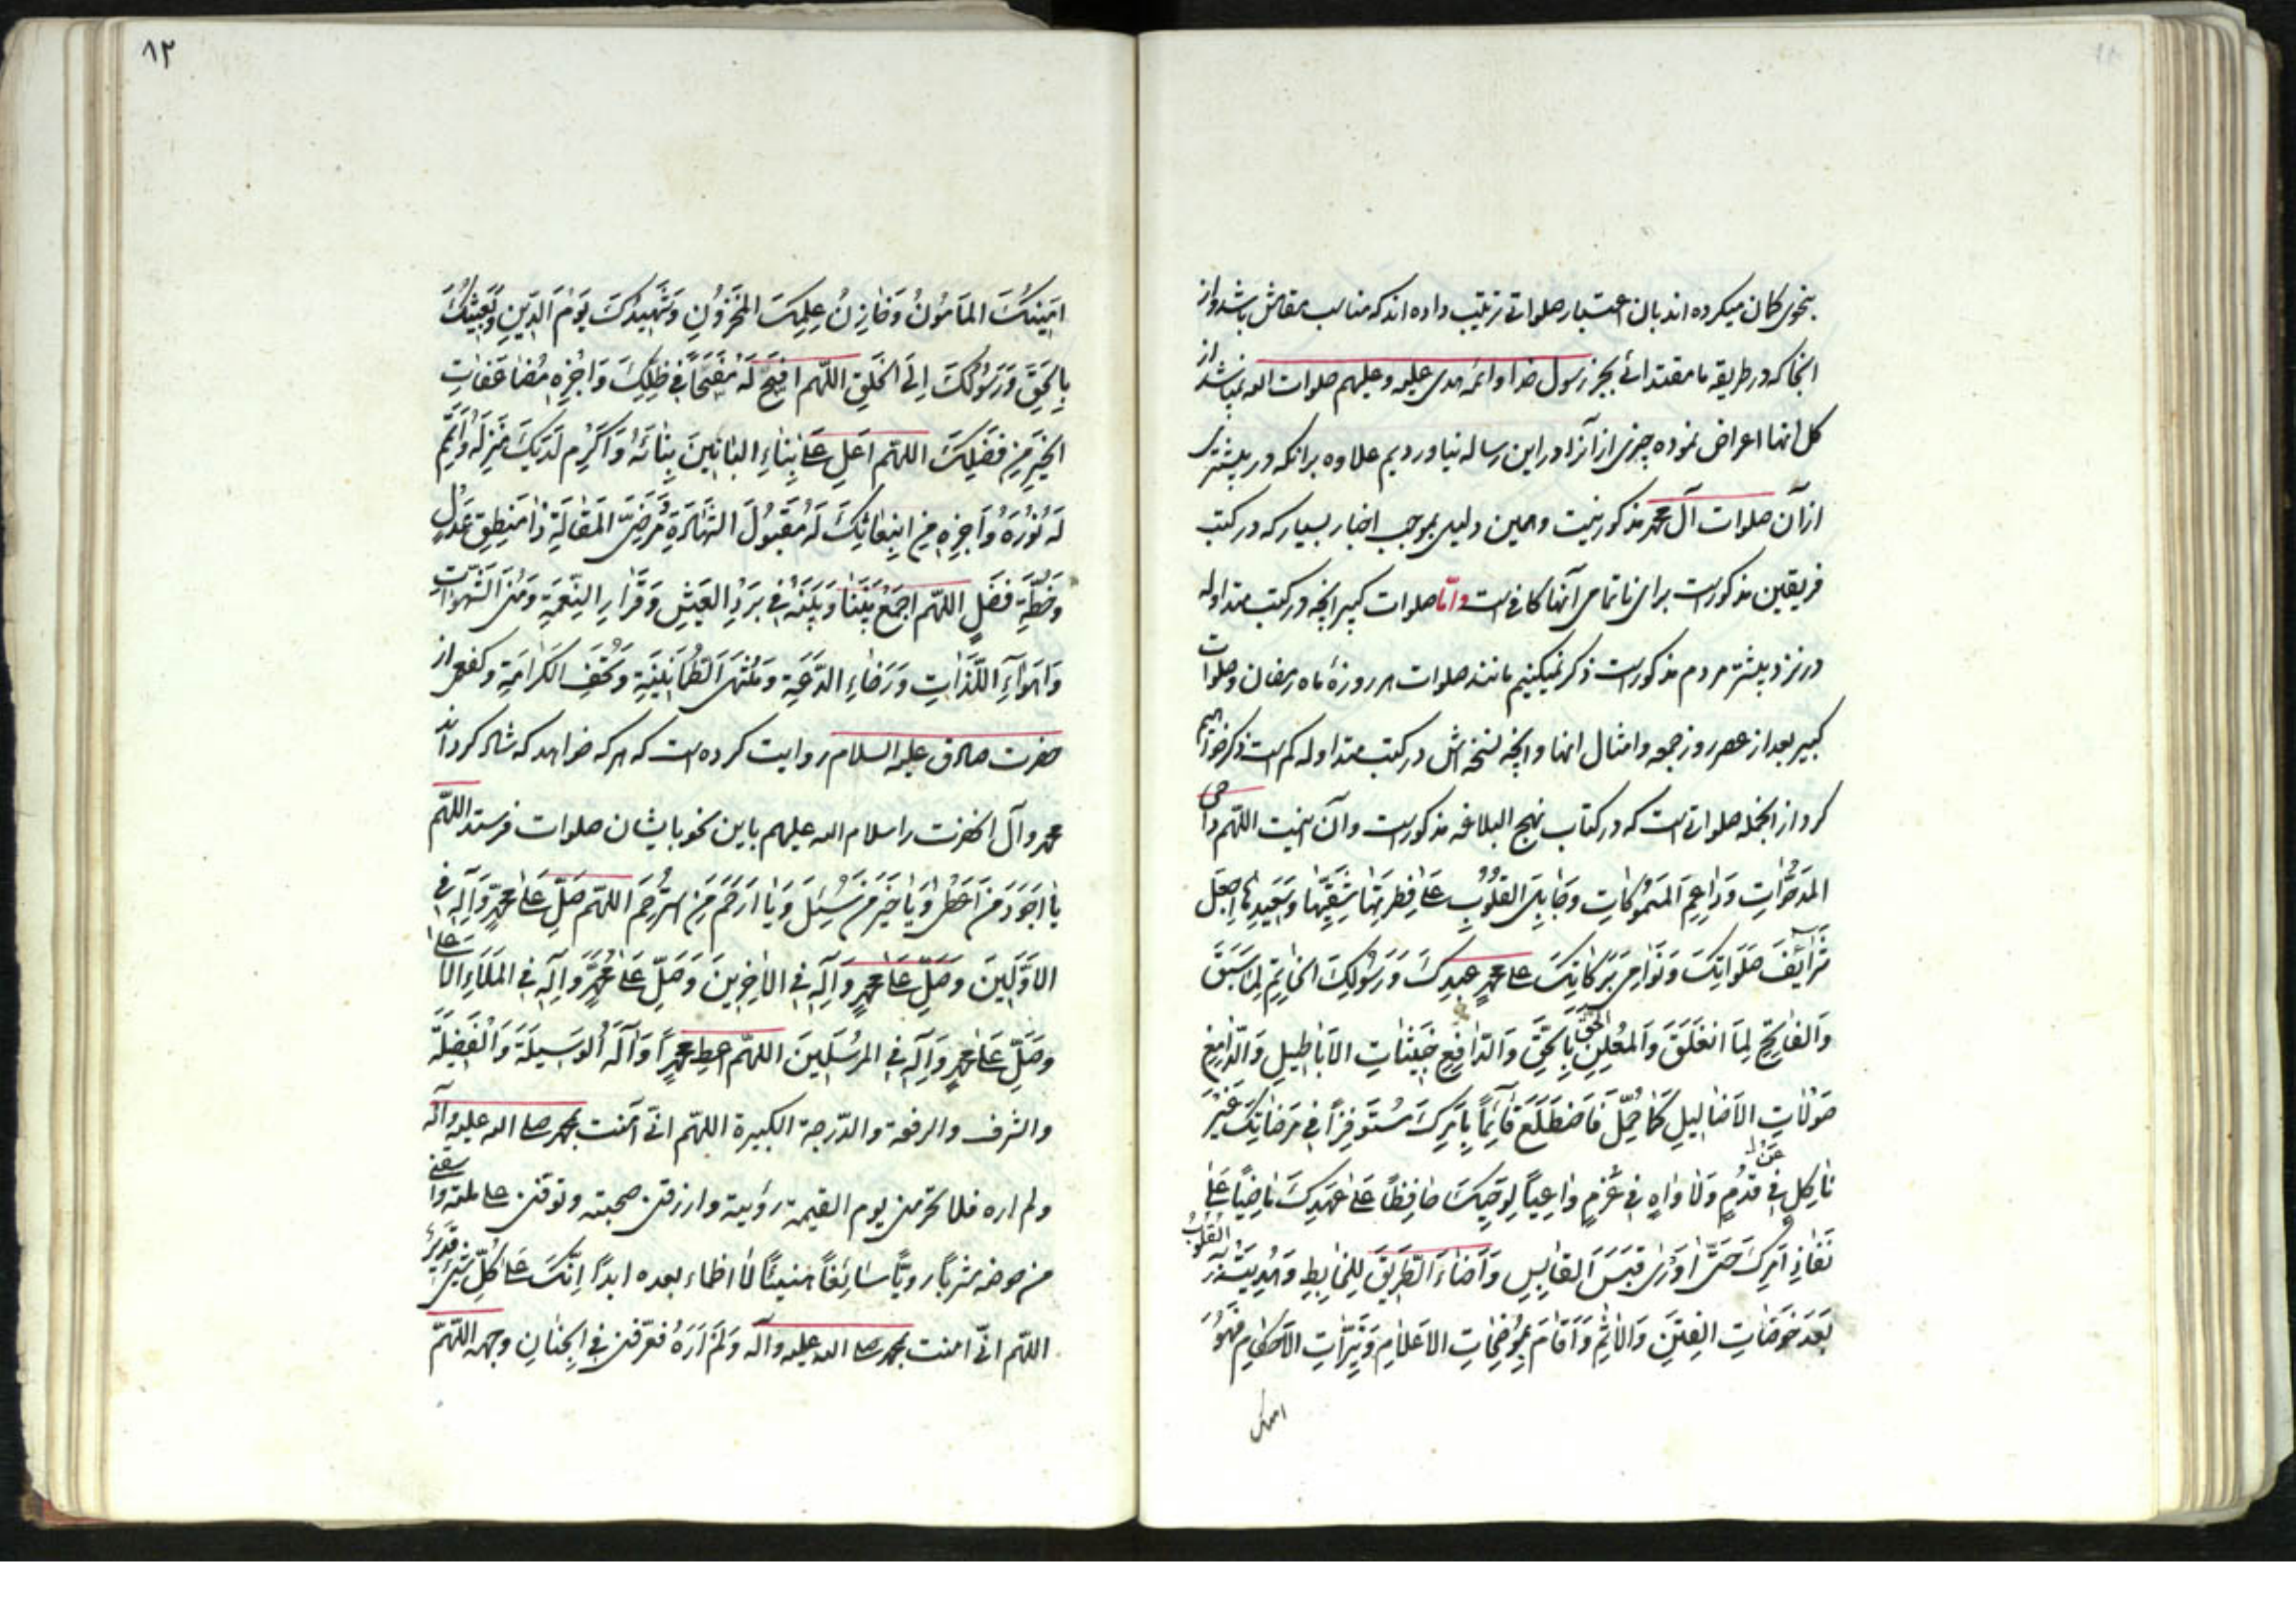 بنحوی کمان میکرده اند بان اعتبار صلواتی ترتیب داده اند که مناسب مقامش باشد و از
انجا که در طریقه ما مقتدائی بجز رسول خدا و ائمه هدی علیه و علیهم صلوات الله نمیباشد از
کل انها اعراض نموده چیزی از آنرا در این رساله نیاوردیم علاوه برانکه در بیشتری
از آن صلوات آل محمد مذکور نیست و همین دلیلی بموجب اخبار بسیار که در کتب
فریقین مذکورست برای ناتمامی آنها کافی است و امّا صلوات کبیر انچه در کتب متداوله
در نزد بیشتر مردم مذکورست ذکر نمیکنیم مانند صلوات هر روزهٔ ماه رمضان و صلوات
کبیر بعد از عصر روز جمعه و امثال انها و انچه نسخه اش در کتب متداوله کم است ذکر خواهیم
کرد از انجمله صلواتی است که در کتاب نهج البلاغه مذکورست و آن اینست اللهم داحی
المَدحُوّاتِ وَدَاعِمَ المَسمُوکَاتِ وَجَابِلَ القُلُوبِ عَلیٰ فِطرَتِهَا شَقِیِّهَا وَسَعِیدِهَا اِجعَل
شَرَائِفَ صَلَوَاتِکَ وَنَوَامِی بَرَکَاتِکَ عَلیٰ مُحَمَّدٍ عَبدِکَ وَرَسُولِکَ الخَاتِمِ لِمَا سَبَقَ
وَالفَاتِحِ لِمَا انغَلَقَ وَالمُعلِنِ الحَقَّ بِالحَقِّ وَالدَّافِعِ جَیشَاتِ الاَبَاطِیلِ وَالدَّامِغِ
صَولَاتِ الاَضَالِیلِ کَمَا حُمِّلَ فَاضطَلَعَ قَائِماً بِاَمرِکَ مُستَوفِزاً فِی مَرضَاتِکَ غَیرَ
نَاکِلٍ عَن قُدُمٍ وَلَا وَاهٍ فِی عَزمٍ وَاعِیاً لِوَحیِکَ حَافِظاً عَلیٰ عَهدِکَ مَاضِیاً عَلیٰ
نَفَاذِ اَمرِکَ حَتّیٰ اَورَیٰ قَبَسَ القَابِسِ وَاَضَاءَ الطَّرِیقَ لِلخَابِطِ وَهُدِیَت بِهِ القُلُوبُ
بَعدَ خَوضَاتِ الفِتَنِ وَالاِثمِ وَاَقَامَ مُوضِحَاتِ الاَعلَامِ وَنَیِّرَاتِ الاَحکَامِ فَهُوَ
امینک
۸۲
اَمِینُکَ المَامُونُ وَخَازِنُ عِلمِکَ المَخزُونِ وَشَهِیدُکَ یَومَ الدِّینِ وَبَعِیثُکَ
بِالحَقِّ وَرَسُولُکَ اِلَی الخَلقِ اللّهم افسَح لَهُ مَفسَحاً فِی ظِلِّکَ وَاجزِهِ مُضَاعَفَاتِ
الخَیرِ مِن فَضلِکَ اللهم اَعلِ عَلیٰ بِنَاءِ البَانِینَ بِنَائَهُ وَاَکرِم لَدَیکَ مَنزِلَهُ وَاَتمِم
لَهُ نُورَهُ وَاجزِهِ مِن ابتِعَاثِکَ لَهُ مَقبُولَ الشَّهَادَةِ مَرضِیَّ المَقَالَةِ ذَا مَنطِقٍ عَدلٍ
وَخُطَّةِ فَصلٍ اللّهم اجمَع بَینَنَا وَبَینَهُ فِی بَردِ العَیشِ وَقَرَارِ النِّعمَةِ وَمُنَی الشَّهَوَاتِ
وَاَهوَاءِ اللَّذَّاتِ وَرَخَاءِ الدَّعَةِ وَمُنتَهَی الطُّمَانِینَةِ وَتُحَفِ الکَرَامَةِ و کفعمی از
حضرت صادق علیه السلام روایت کرده است که هر که خواهد که شاد کرداند
محمد و آل انحضرت را سلام الله علیهم باین نحو بایشان صلوات فرستد اللّهمّ
یَا اَجوَدَ مَن اَعطیٰ وَیَا خَیرَ مَن سُئِلَ وَیَا اَرحَمَ مَن استُرحِمَ اللهم صَلِّ عَلیٰ مُحَمَّدٍ وَآلِهِ فِی
الاَوَّلِینَ وَصَلِّ عَلیٰ مُحَمَّدٍ وَآلِهِ فِی الآخِرِینَ وَصَلِّ عَلیٰ مُحَمَّدٍ وَآلِهِ فِی المَلَاءِ الاَعلیٰ
وَصَلِّ عَلیٰ مُحَمَّدٍ وَآلِهِ فِی المُرسَلِینَ اللهم اعطِ مُحَمَّداً وَآلَهُ الوَسِیلَةَ وَالفَضِیلَةَ
والشرف والرفعة والدّرجة الکبیرة اللهم انّی آمنت بمحمد صلی الله علیه وآله
ولم اره فلا تحرمنی یوم القیمة رؤیته وارزقنی صحبته وتوفّنی علی ملته واسقنی
من حوضه شرباً رویّاً سَائِغاً هنیئاً لَا اظماء بعده ابداً اِنَّکَ عَلیٰ کُلِّ شَیءٍ قَدِیرٌ
اللّهم انّی امنت بمحمد صلی الله علیه وآله وَلَم اَرَهُ فعرّفنی فِی الجِنَانِ وجهه اللّهمّ